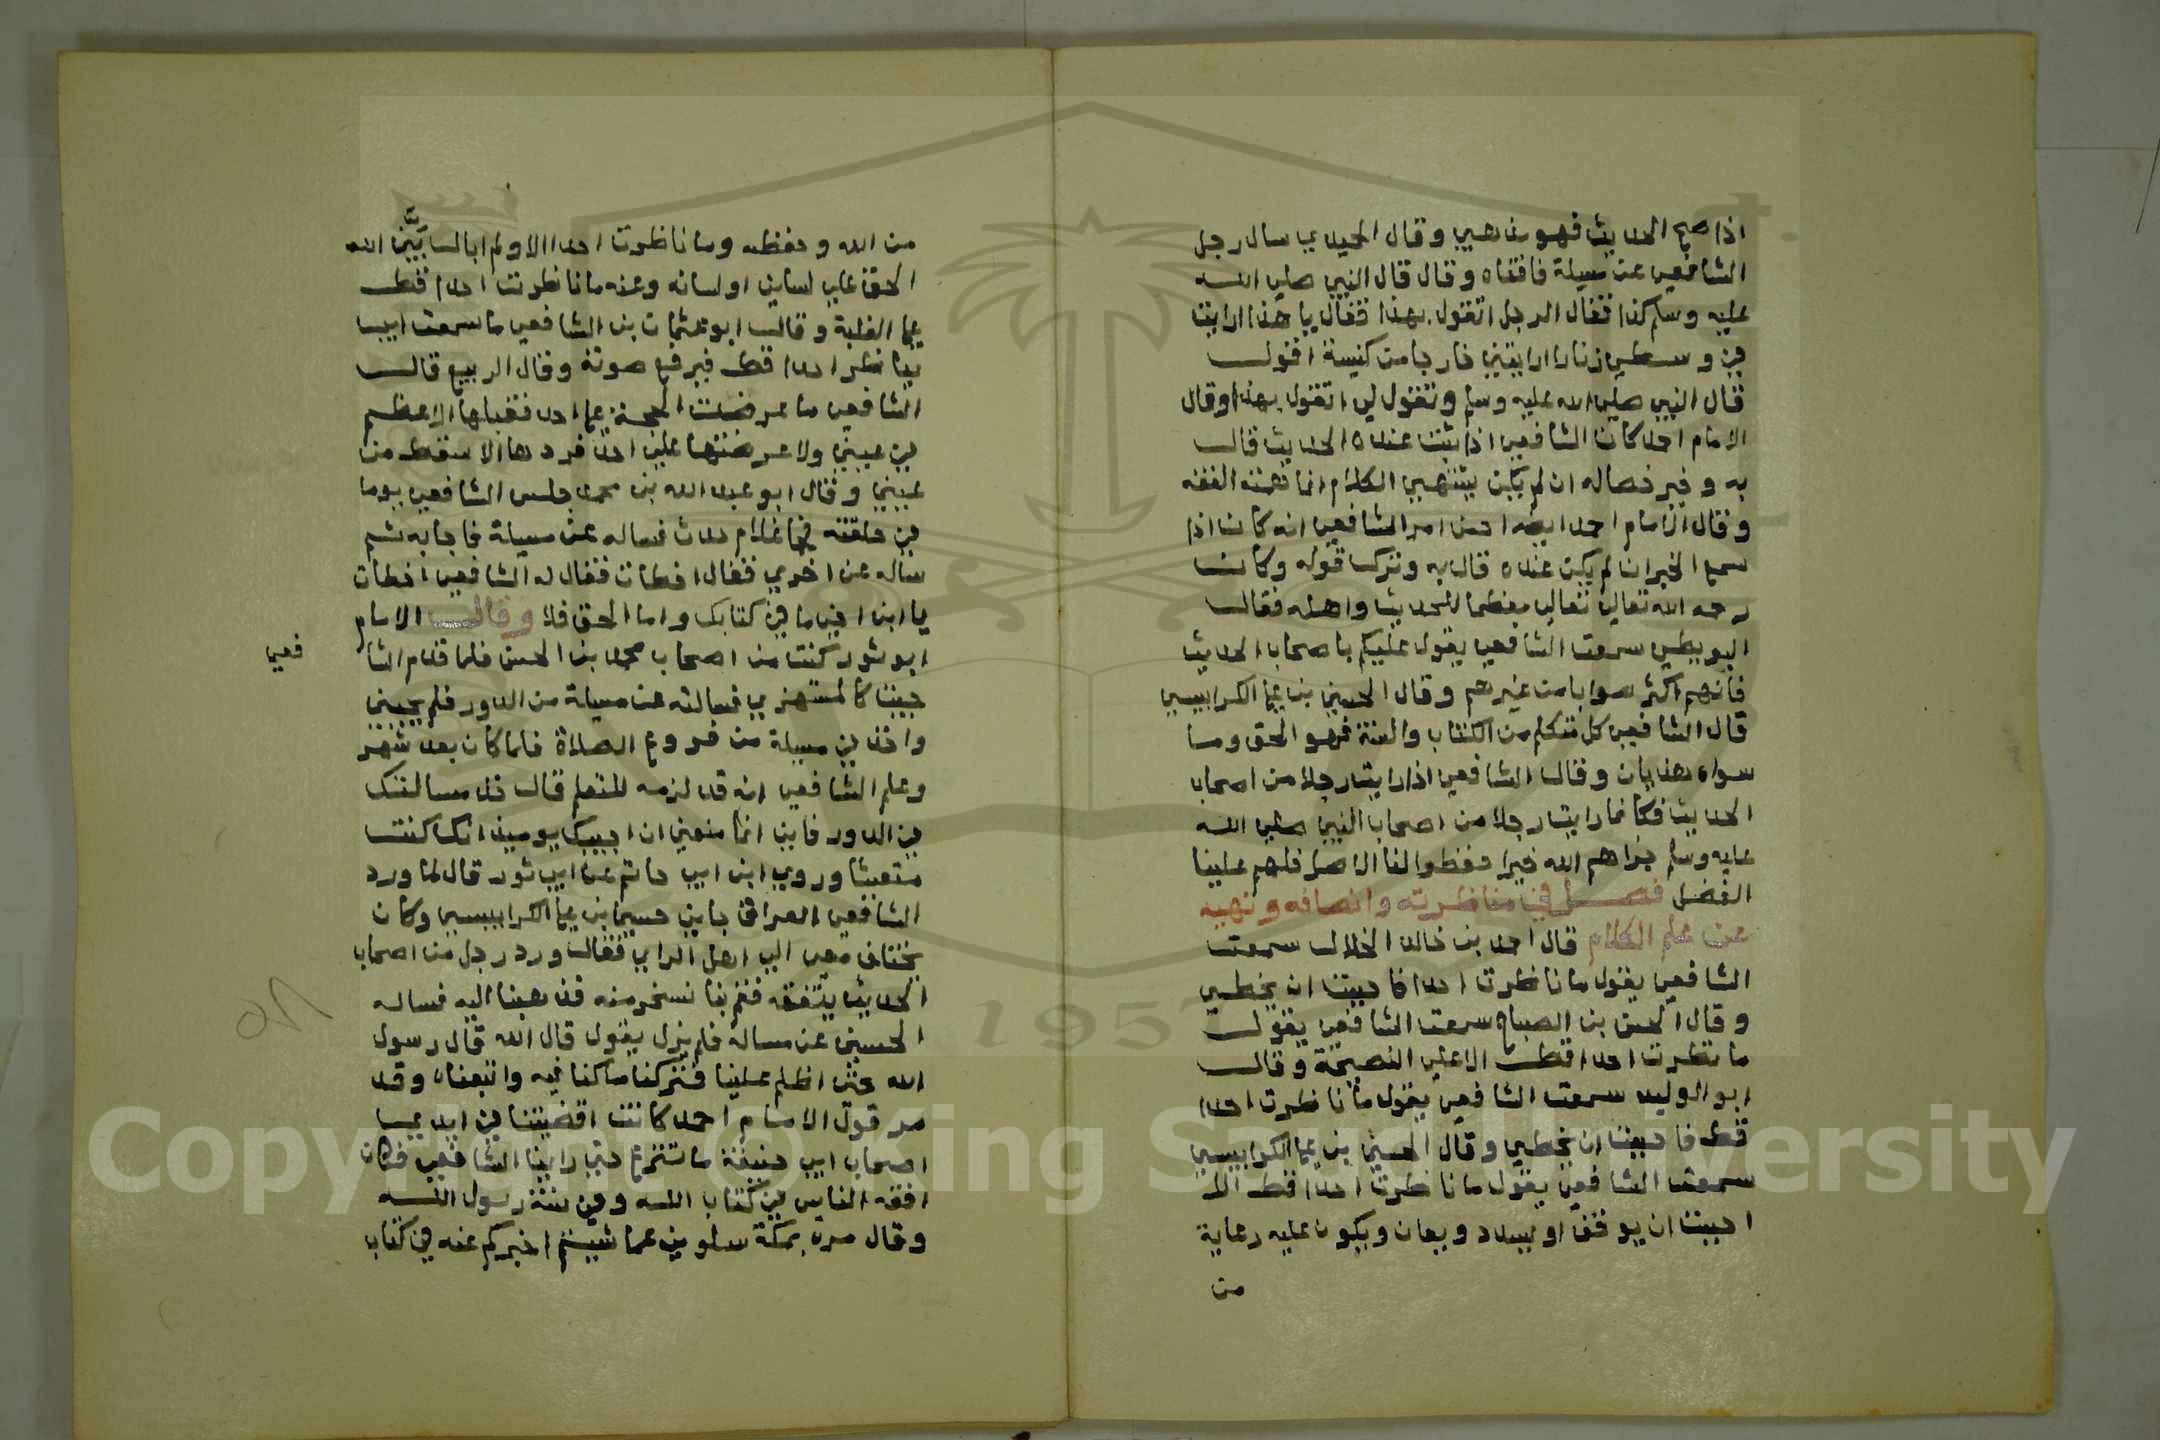 اذا صح الحديث فهو مذهبي وقال الحميدي سال رجل
الشافعي عن مسيلة فافتاه وقال قال النبي صلي الله
عليه وسلم كذا فقال الرجل اتقول بهذا فقال يا هذا ارايت
في وسطي زنارا ارايتني خارجا من كنيسة اقول
قال النبي صلي الله عليه وسلم وتقول لي اتقول بهذا وقال
الامام احمد كان الشافعي اذا ثبت عنده الحديث قال
به وخير خصاله ان لم يكن يشتهي الكلام انما همته الفقه
وقال الامام احمد ايضا احسن امر الشافعي انه كان اذا
سمع الخبر ان لم يكن عنده قال به وترك قوله وكان
رحمه الله تعالي تعالي معظما للحديث واهله فقال
البويطي سمعت الشافعي يقول عليكم باصحاب الحديث
فانهم اكثر صوابا من غيرهم وقال الحسين بن علي الكرابيسي
قال الشافعي كل متكلم من الكتاب والسنة فهو الحق وما
سواه هذيان وقال الشافعي اذا رايت رجلا من اصحاب
الحديث فكانما رايت رجلا من اصحاب النبي صلي الله
عليه وسلم جزاهم الله خيرا حفظوا لنا الاصل فلهم علينا
الفضل فصل في مناظرته وانصافه ونهيه
عن علم الكلام قال احمد بن خالد الخلال سمعت
الشافعي يقول ما ناظرت احدا فاحببت ان يخطي
وقال الحسن بن الصباح سمعت الشافعي يقول
ما نظرت احدا قط الا علي النصيحة وقال
ابو الوليد سمعت الشافعي يقول ما ناظرت احدا
قط فاحببت ان يخطي وقال الحسين بن علي الكرابيسي
سمعت الشافعي يقول ما ناظرت احدا قط الا
احببت ان يوفق او يسدد ويعان ويكون عليه رعاية
من
من الله وحفظه وما ناظرت احدا الا ولم ابال بيَّن الله
الحق علي لساني او لسانه وعنه ما ناظرت احدا قط
علي الغلبة وقال ابو عثمان بن الشافعي ما سمعت ابي
يناظر احدا قط فيرفع صوته وقال الربيع قال
الشافعي ما عرضت الحجة علي احد فقبلها الا عظم
في عيني ولا عرضتها علي احد فردها الا سقط من
عيني وقال ابو عبد الله بن محمد جلس الشافعي يوما
في حلقته فجا غلام حدث فساله عن مسيلة فاجابه ثم
ساله عن اخري فقال اخطات فقال له الشافعي اخطات
يا ابن اخي ما في كتابك واما الحق فلا وقال الامام
ابو ثور كنت من اصحاب محمد بن الحسن فلما قدم الشا
فعي
جيت كالمستهزي فسالته عن مسيلة من الدور فلم يجبني
واخذ في مسيلة من فروع الصلاة فلما كان بعد شهر
وعلم الشافعي انه قد لزمه للتعلم قال خذ مسالتك
في الدور فاني انما منعني ان اجيبك يوميذ انك كنت
متعنتا وروي ابن ابي حاتم عن ابي ثور قال لما ورد
الشافعي العراق جاني حسين بن علي الكرابيسي وكان
يختلف معي الي اهل الراي فقال ورد رجل من اصحاب
الحديث يتفقه فقم بنا نسخر منه فذهبنا اليه فساله
الحسين عن مساله فلم يزل يقول قال الله قال رسول
الله حتي اظلم علينا فتركنا ما كنا فيه واتبعناه وقد
مر قول الامام احمد كانت اقضيتنا في ايدي
اصحاب ابي حنيفة ما تنتزع حتي راينا الشافعي فكان
افقه الناس في كتاب الله وفي سنة رسول الله
وقال مرة بمكة سلوني عما شيتم اخبركم عنه في كتاب
Copyright © King Saud University
1957